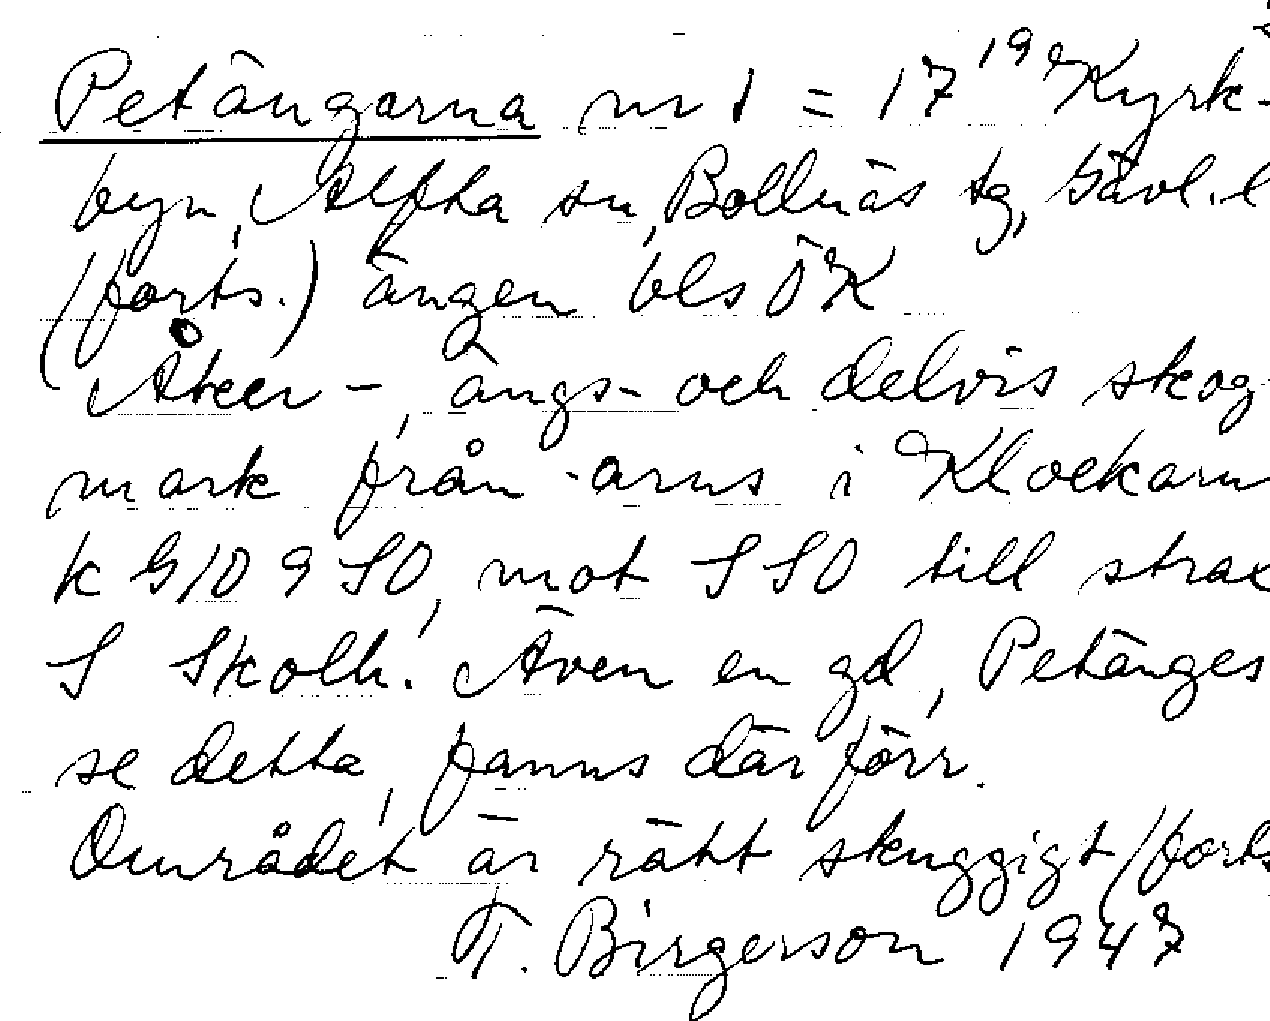 Petängarna nr 1 = 17¹⁹ Kyrk-
byn, Alfta sn, Bollnäs tg, Gävl. l
(forts.) ängen bls ÖK
Åker-, ängs- och delvis skog
mark från -arns i Klockarn
k G 10 9 SO, mot SSO till strax
S Skolh. Även en gd, Petänges
se detta, fanns där förr.
Området är rätt skuggigt (forts
T. Birgerson 1947